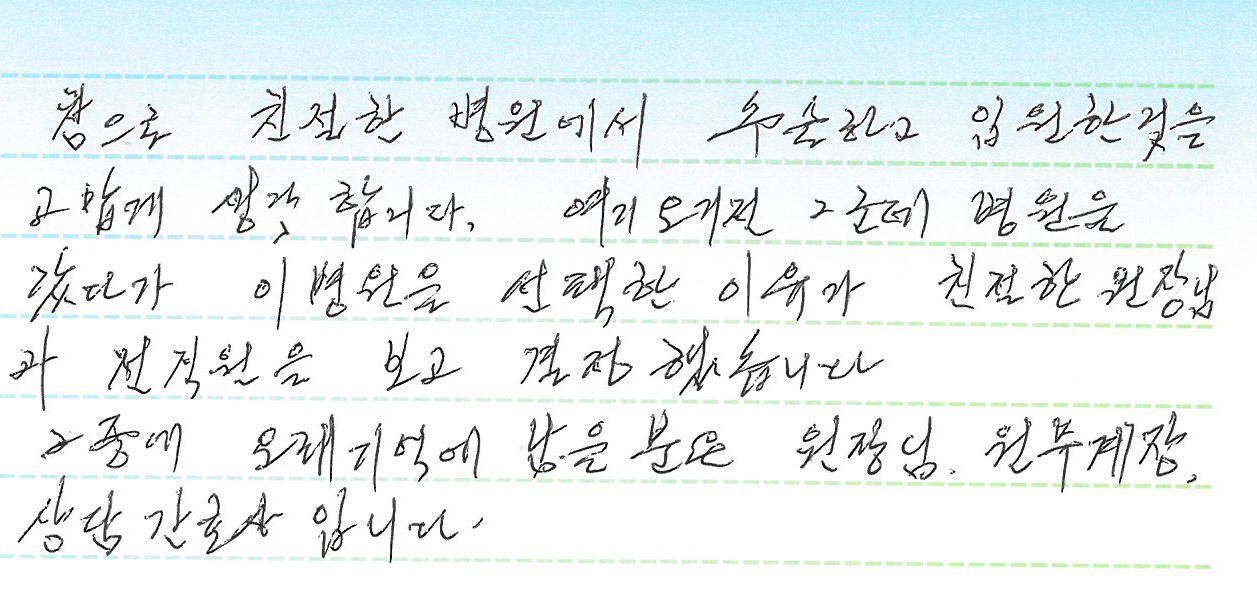 참으로 친절한 병원에서 수술하고 입원한것을
고맙게 생각 합니다. 여기 오기전 2군데 병원을
갔다가 이 병원을 선택한 이유가 친절한 원장님
과 전직원을 보고 결정 했습니다
그중에 오래 기억에 남을 분은 원장님. 원무계장.
상담 간글사 입니다.